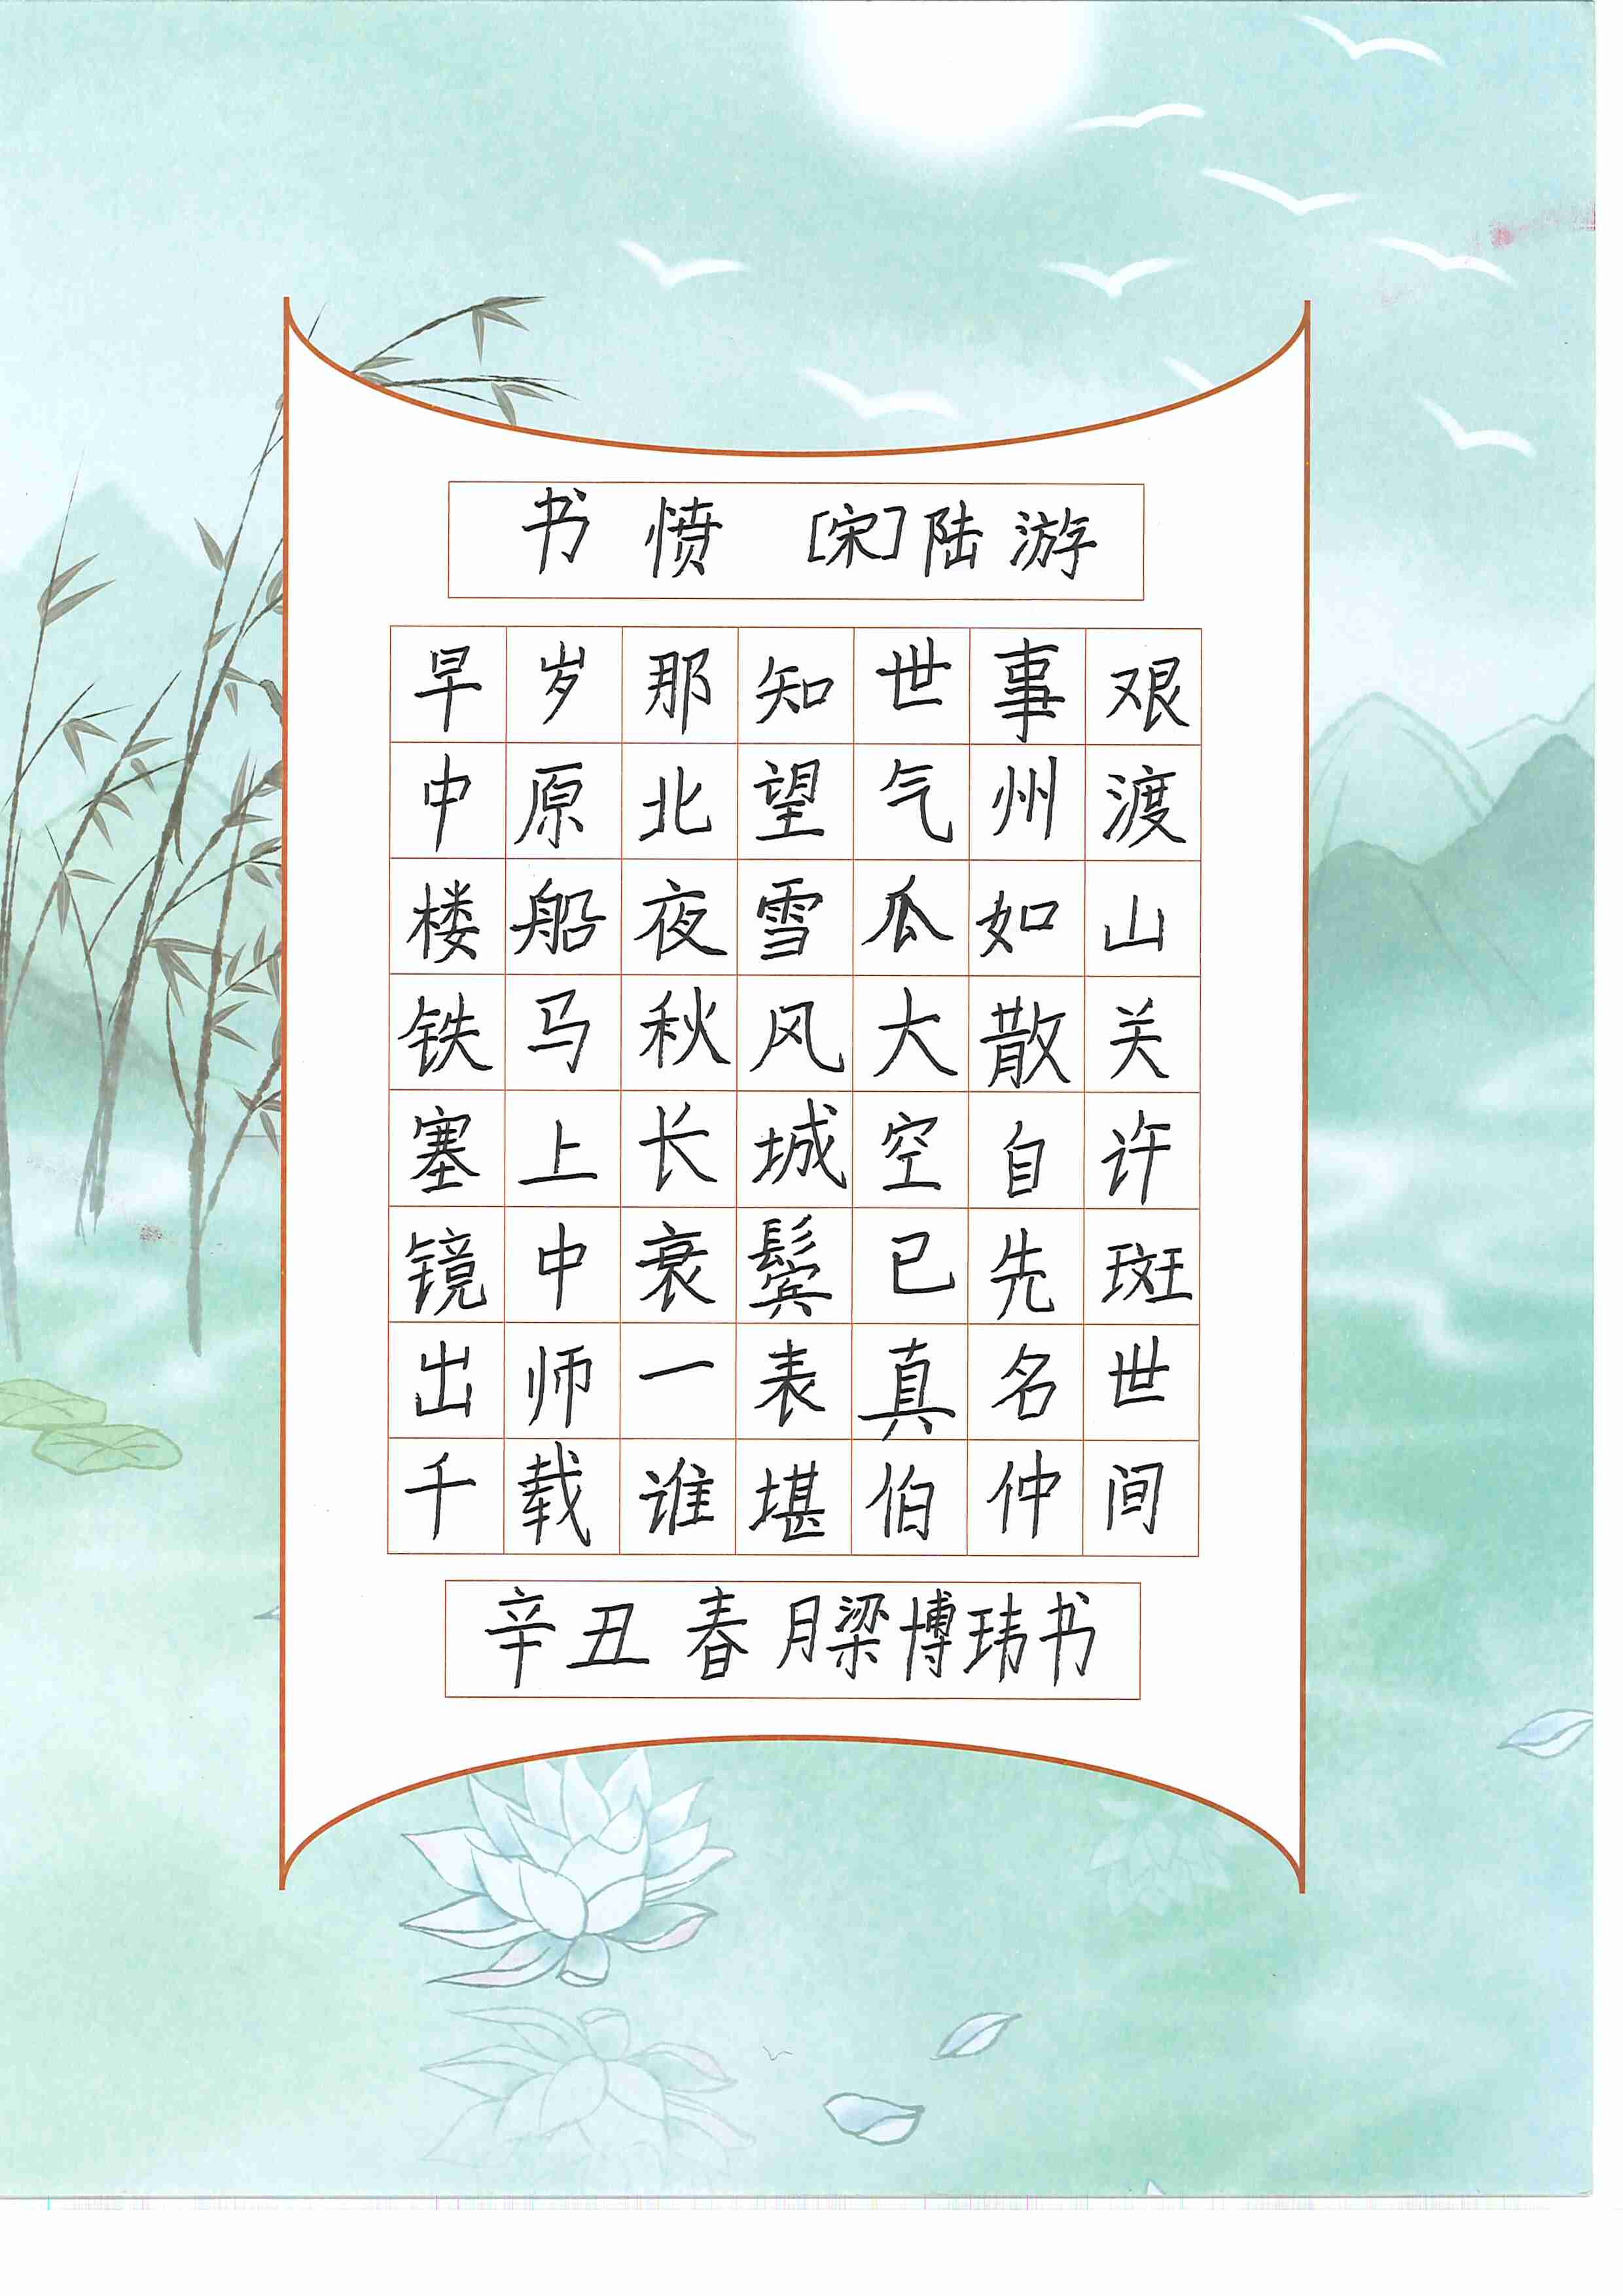 书愤 [宋]陆游
早岁那知世事艰
中原北望气州渡
楼船夜雪瓜如山
铁马秋风大散关
塞上长城空自许
镜中衰鬓已先斑
出师一表真名世
千载谁堪伯仲间
辛丑春月梁博玮书